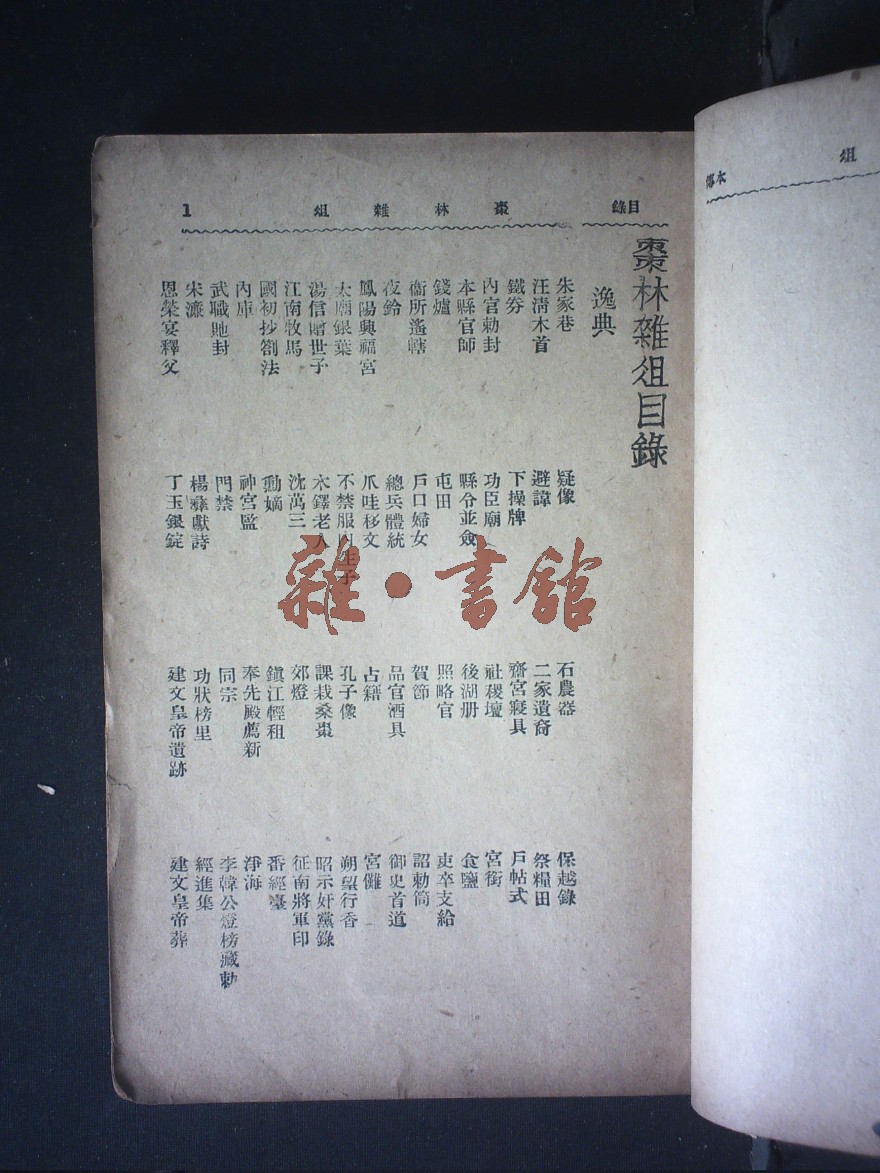 目錄 棗林雜俎 1
棗林雜俎目錄
逸典
朱家巷 疑像 石農器 保越錄
汪清木首 避諱 二家遺裔 祭糧田
鐵券 下操牌 齋宮寢具 戶帖式
內官勅封 功臣廟 社稷壇 宮銜
本縣官師 縣令並僉 後湖册 食鹽
錢爐 屯田 照略官 吏卒支給
衞所遙轄 戶口婦女 賀節 詔勅筒
夜鈴 總兵體統 品官酒具 御史首道
鳳陽興福宮 爪哇移文 占籍 宮儺
太廟銀葉 不禁服內生子 孔子像 朔望行香
湯信贈世子 木鐸老人 課栽桑棗 昭示奸黨錄
江南牧馬 沈萬三 郊燈 征南將軍印
國初抄劄法 勳嫡 鎮江輕租 番經臺
內庫 神宮監 奉先殿薦新 淨海
武職貤封 門禁 同宗 李韓公燈榜藏勅
宋濂 楊彝獻詩 功狀榜里 經進集
恩榮宴釋父 丁玉銀錠 建文皇帝遺跡 建文皇帝葬
雜·書館
俎